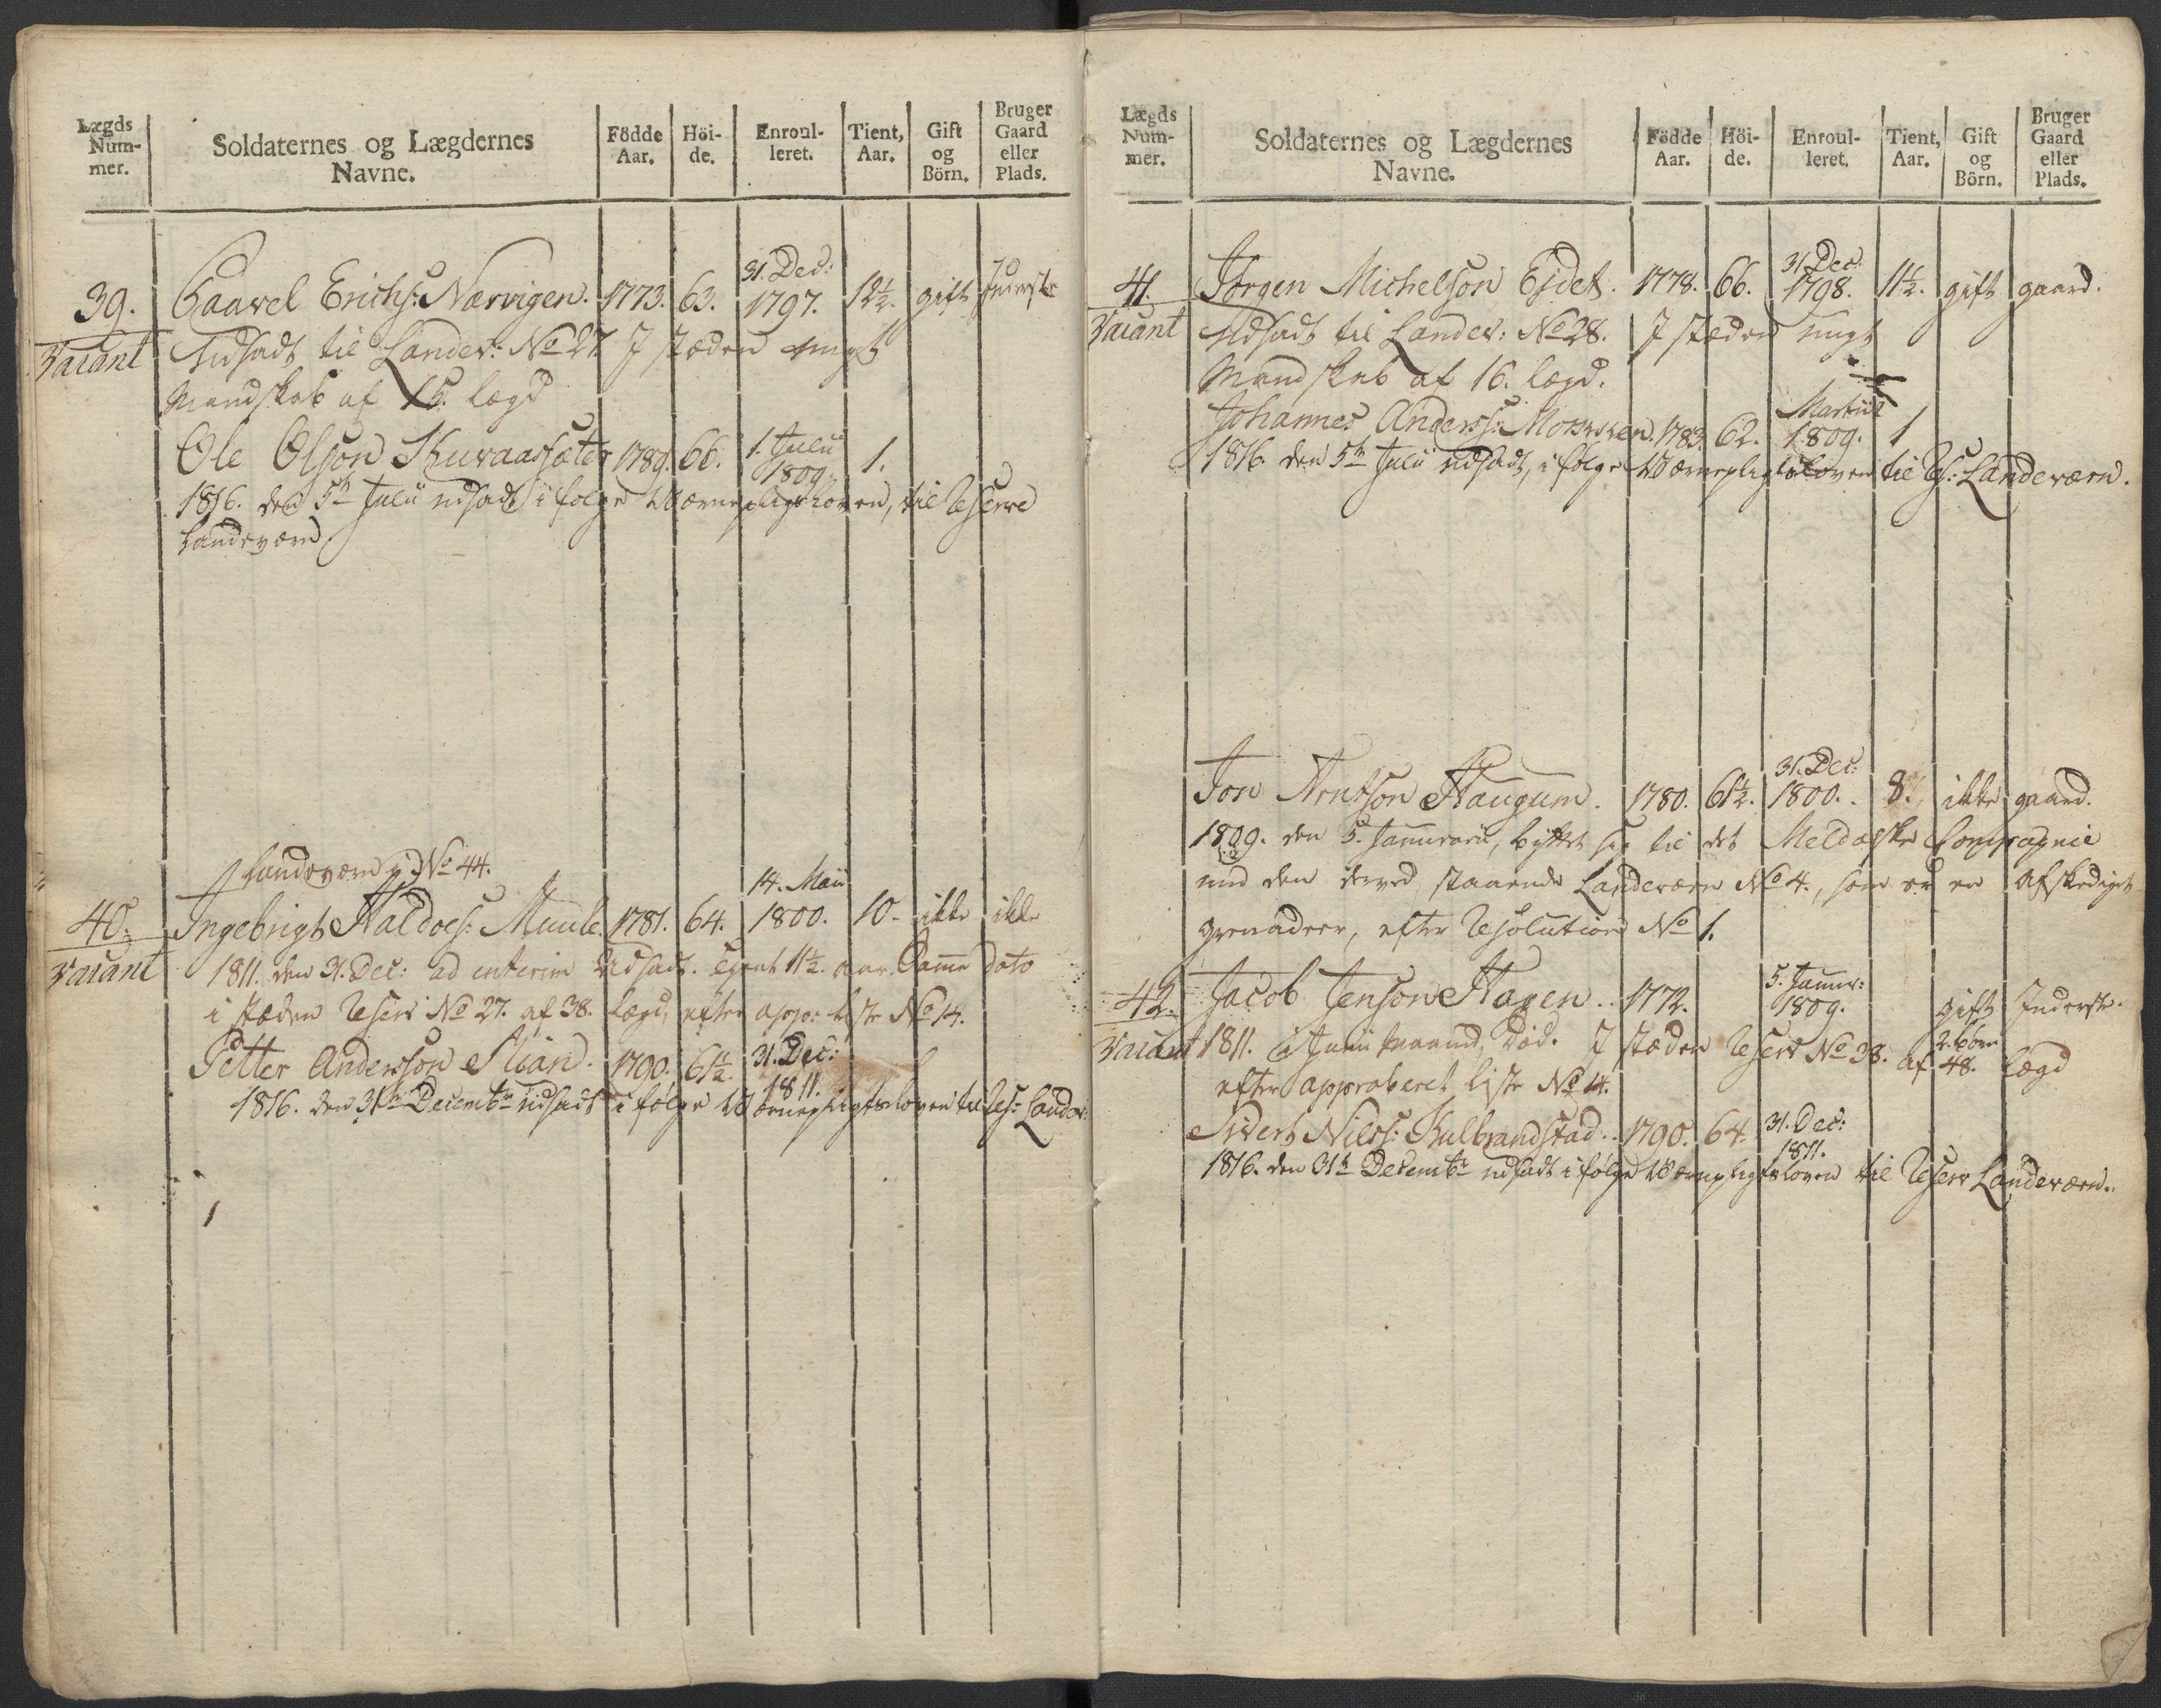 Lægds Num- mer. Soldaternes og Lægdernes Navne. Födde Aar. Höi- de. Enroul- leret. Tient, Aar. Gift og Börn. Bruger Gaard eller Plads.
39. Erichs: Narvigen. 1773. 63. 31. Dec: 1797. 12½. gift Inderste
Vacant Udsadt til Landev: No 27. I stæden
Mandskab af 15. lægd
Ole Olson Kuraassæter 1789. 66. 1. Julii 1809. 1.
1816. den 5te Julii udsadt i følge Værnepligtsloven, til Reserve
Landeværn.
Landeværn No 44.
40. Ingebrigt Haldoes: Muule. 1781. 64. 14. Maii 1800. 10. ikke ikke
Vacant 1811. den 31. Dec: ad interim Udsadt. tient 11½. aar. Samme Dato
i stæden Reserv No 27. af 38. lægd, efter appr: Liste No 14.
Petter Andersson Moan. 1790. 61½. 31. Dec: 1811.
1816. den 31te Decembr udsadt i følge Værnepligtsloven til Res: Landev:
Lægds Num- mer. Soldaternes og Lægdernes Navne. Födde Aar. Höi- de. Enroul- leret. Tient, Aar. Gift og Börn. Bruger Gaard eller Plads.
41. Jørgen Michelson Ejdet. 1778. 66. 31. Dec: 1798. 11½. gift gaard.
Vacant Udsadt til Landev: No 28. I stæden
Mandskab af 16. lægd.
Johannes Anderss: 1783. 62. Martii 1809. 1
1816. den 5te Julii udsadt, i følge Værnepligtsloven til Res: Landeværn.
Jon Arntson Haugum. 1780. 61½. 31. Dec: 1800. 8. ikke gaard.
1809. den 5. Januarii, byttet sig til det Meldalske Compagnie
med den derved staaende Landeværn No 4., som er en afskediget
Grenadeer, efter Resolution No 1.
42. Jacob Jenson Hagen. 1772. 5. Januar: 1809. gift 2. børn Inderste.
Vacant 1811. i Junii Maaned, Død. I stæden Reserv No 38. af 48. lægd
efter approberet Liste No 14.
Sivert Nilss: Kulbrandstad. 1790. 64. 31. Dec: 1811.
1816. den 31te Decembr udsadt i følge Værnepligtsloven til Reserv Landeværn.